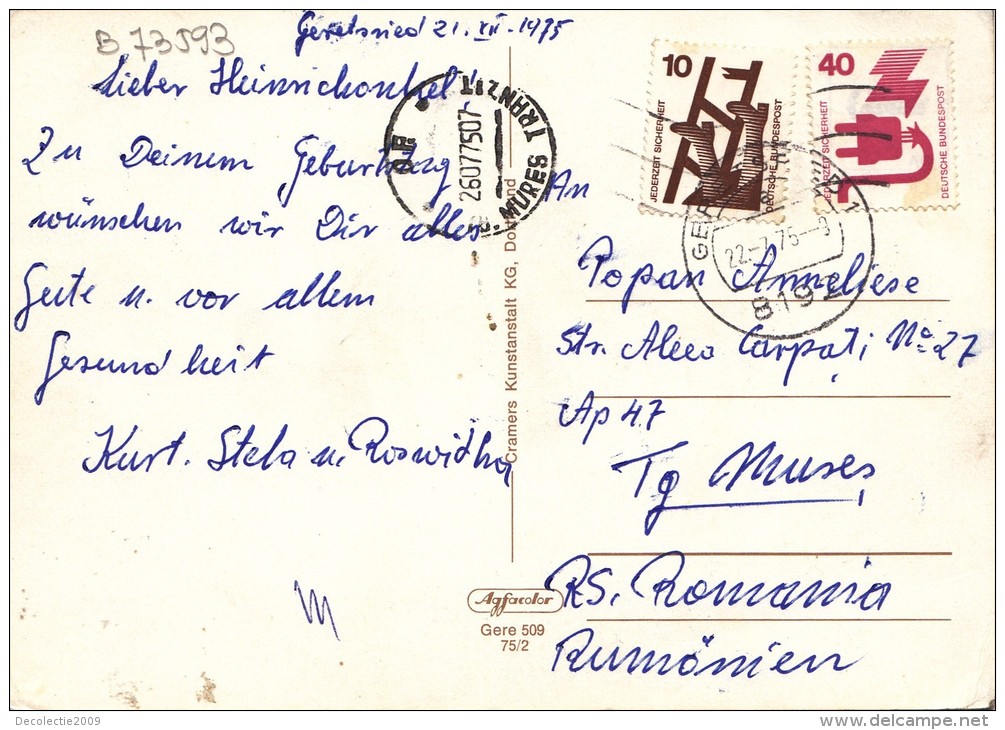 B 73593
Geretsried 21. VII. 1975
Lieber Heinrichonkel!
Zu Deinem Geburtstag
wünschen wir Dir alles
Gute u. vor allem
Gesundheit
Kurt. Stela u. Roswitha
TG. MURES TRANZIT
26077507
Cramers Kunstanstalt KG, Do
nd
Agfacolor
Gere 509
75/2
10
JEDERZEIT SICHERHEIT
DEUTSCHE BUNDESPOST
40
JEDERZEIT SICHERHEIT
DEUTSCHE BUNDESPOST
22.-7.75
819
An
Popan Anneliese
Str. Aleea Carpați No 27
Ap 47
Tg Mureș
RS. Romania
Rumänien
Decolectie2009
www.delcampe.net